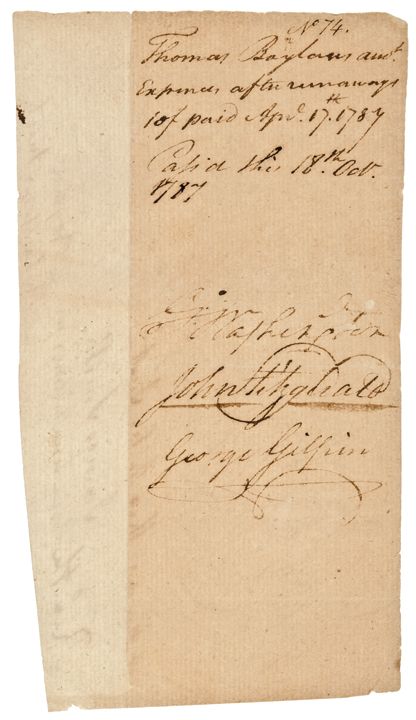 No. 74.
Thomas Boylans acct.
Expences after runaways
10/ paid Apr. 17th. 1787
Pass'd this 18th. Octr.
1787
Go: Washington
John Fitzgerald
George Gilpin